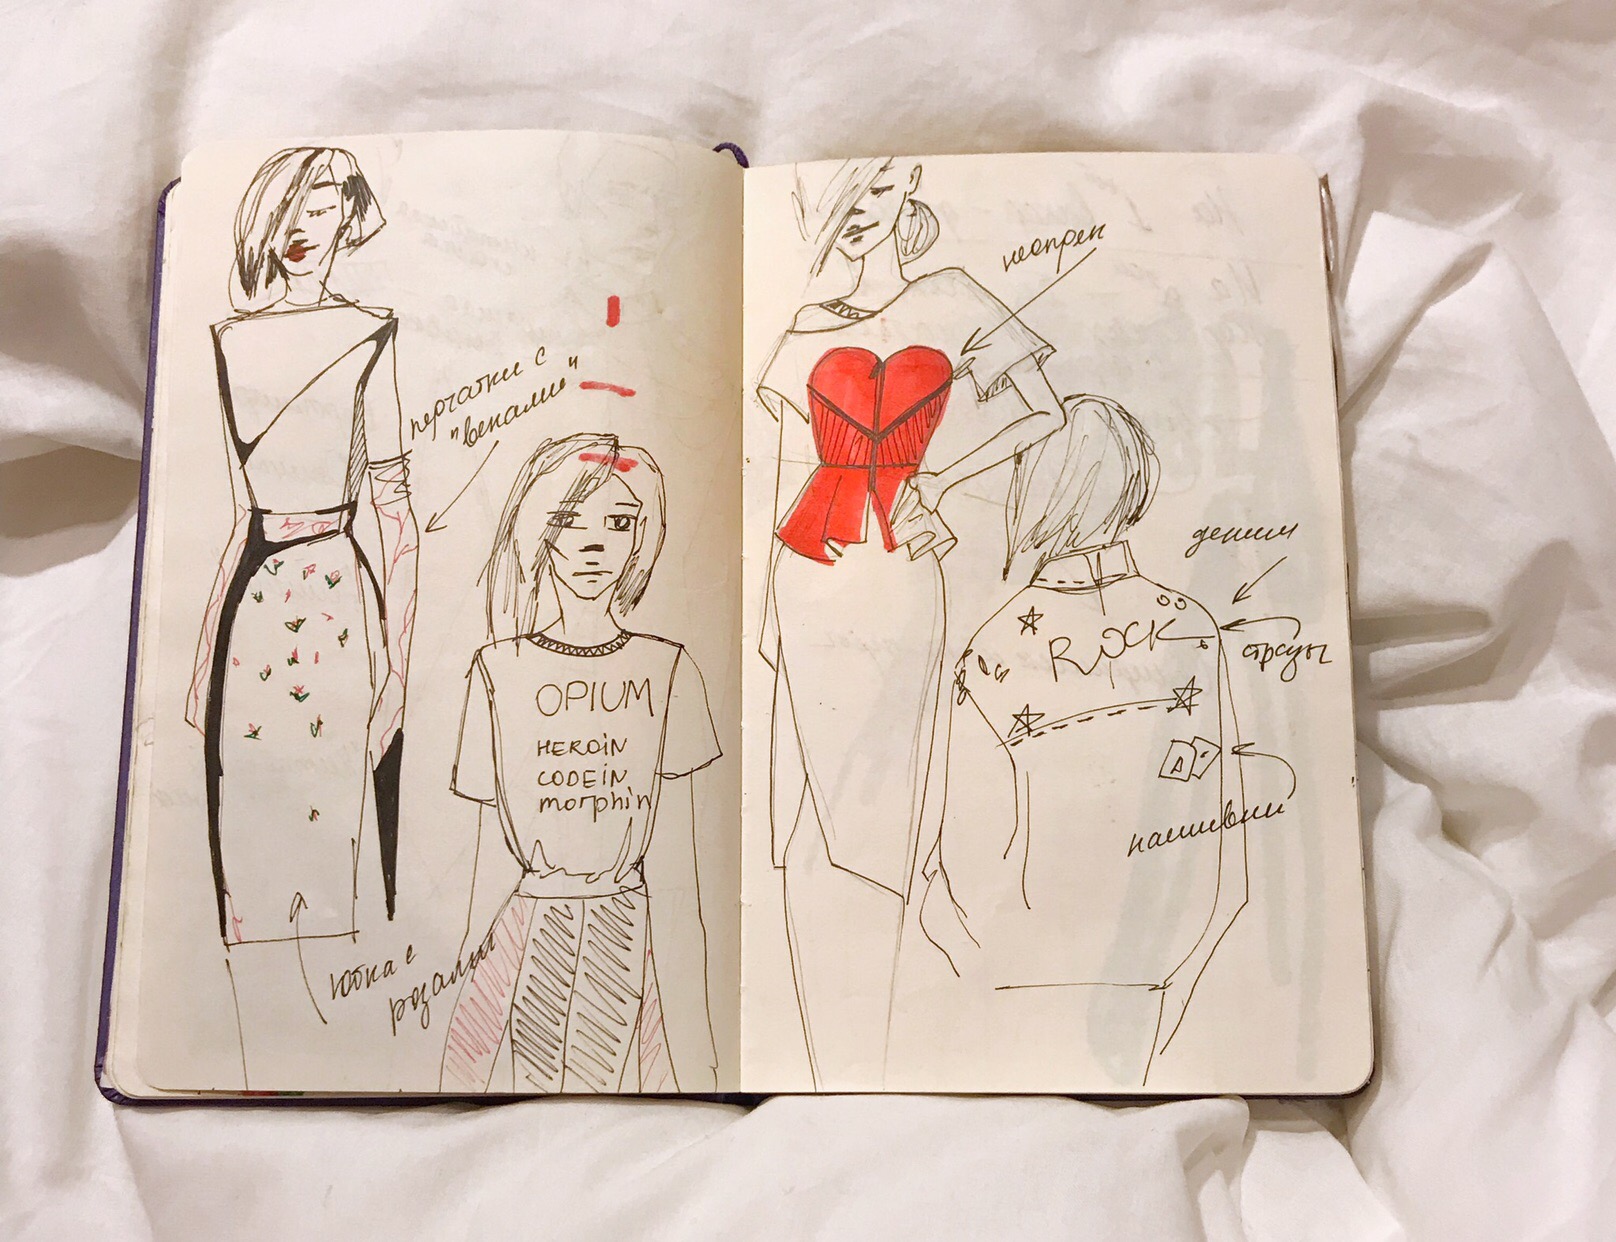 перчатки с
"венами"
OPIUM
HEROiN
CODEiN
morphin
Юбка с
розами
неопрен
деним
стразы
ROCK
нашивки